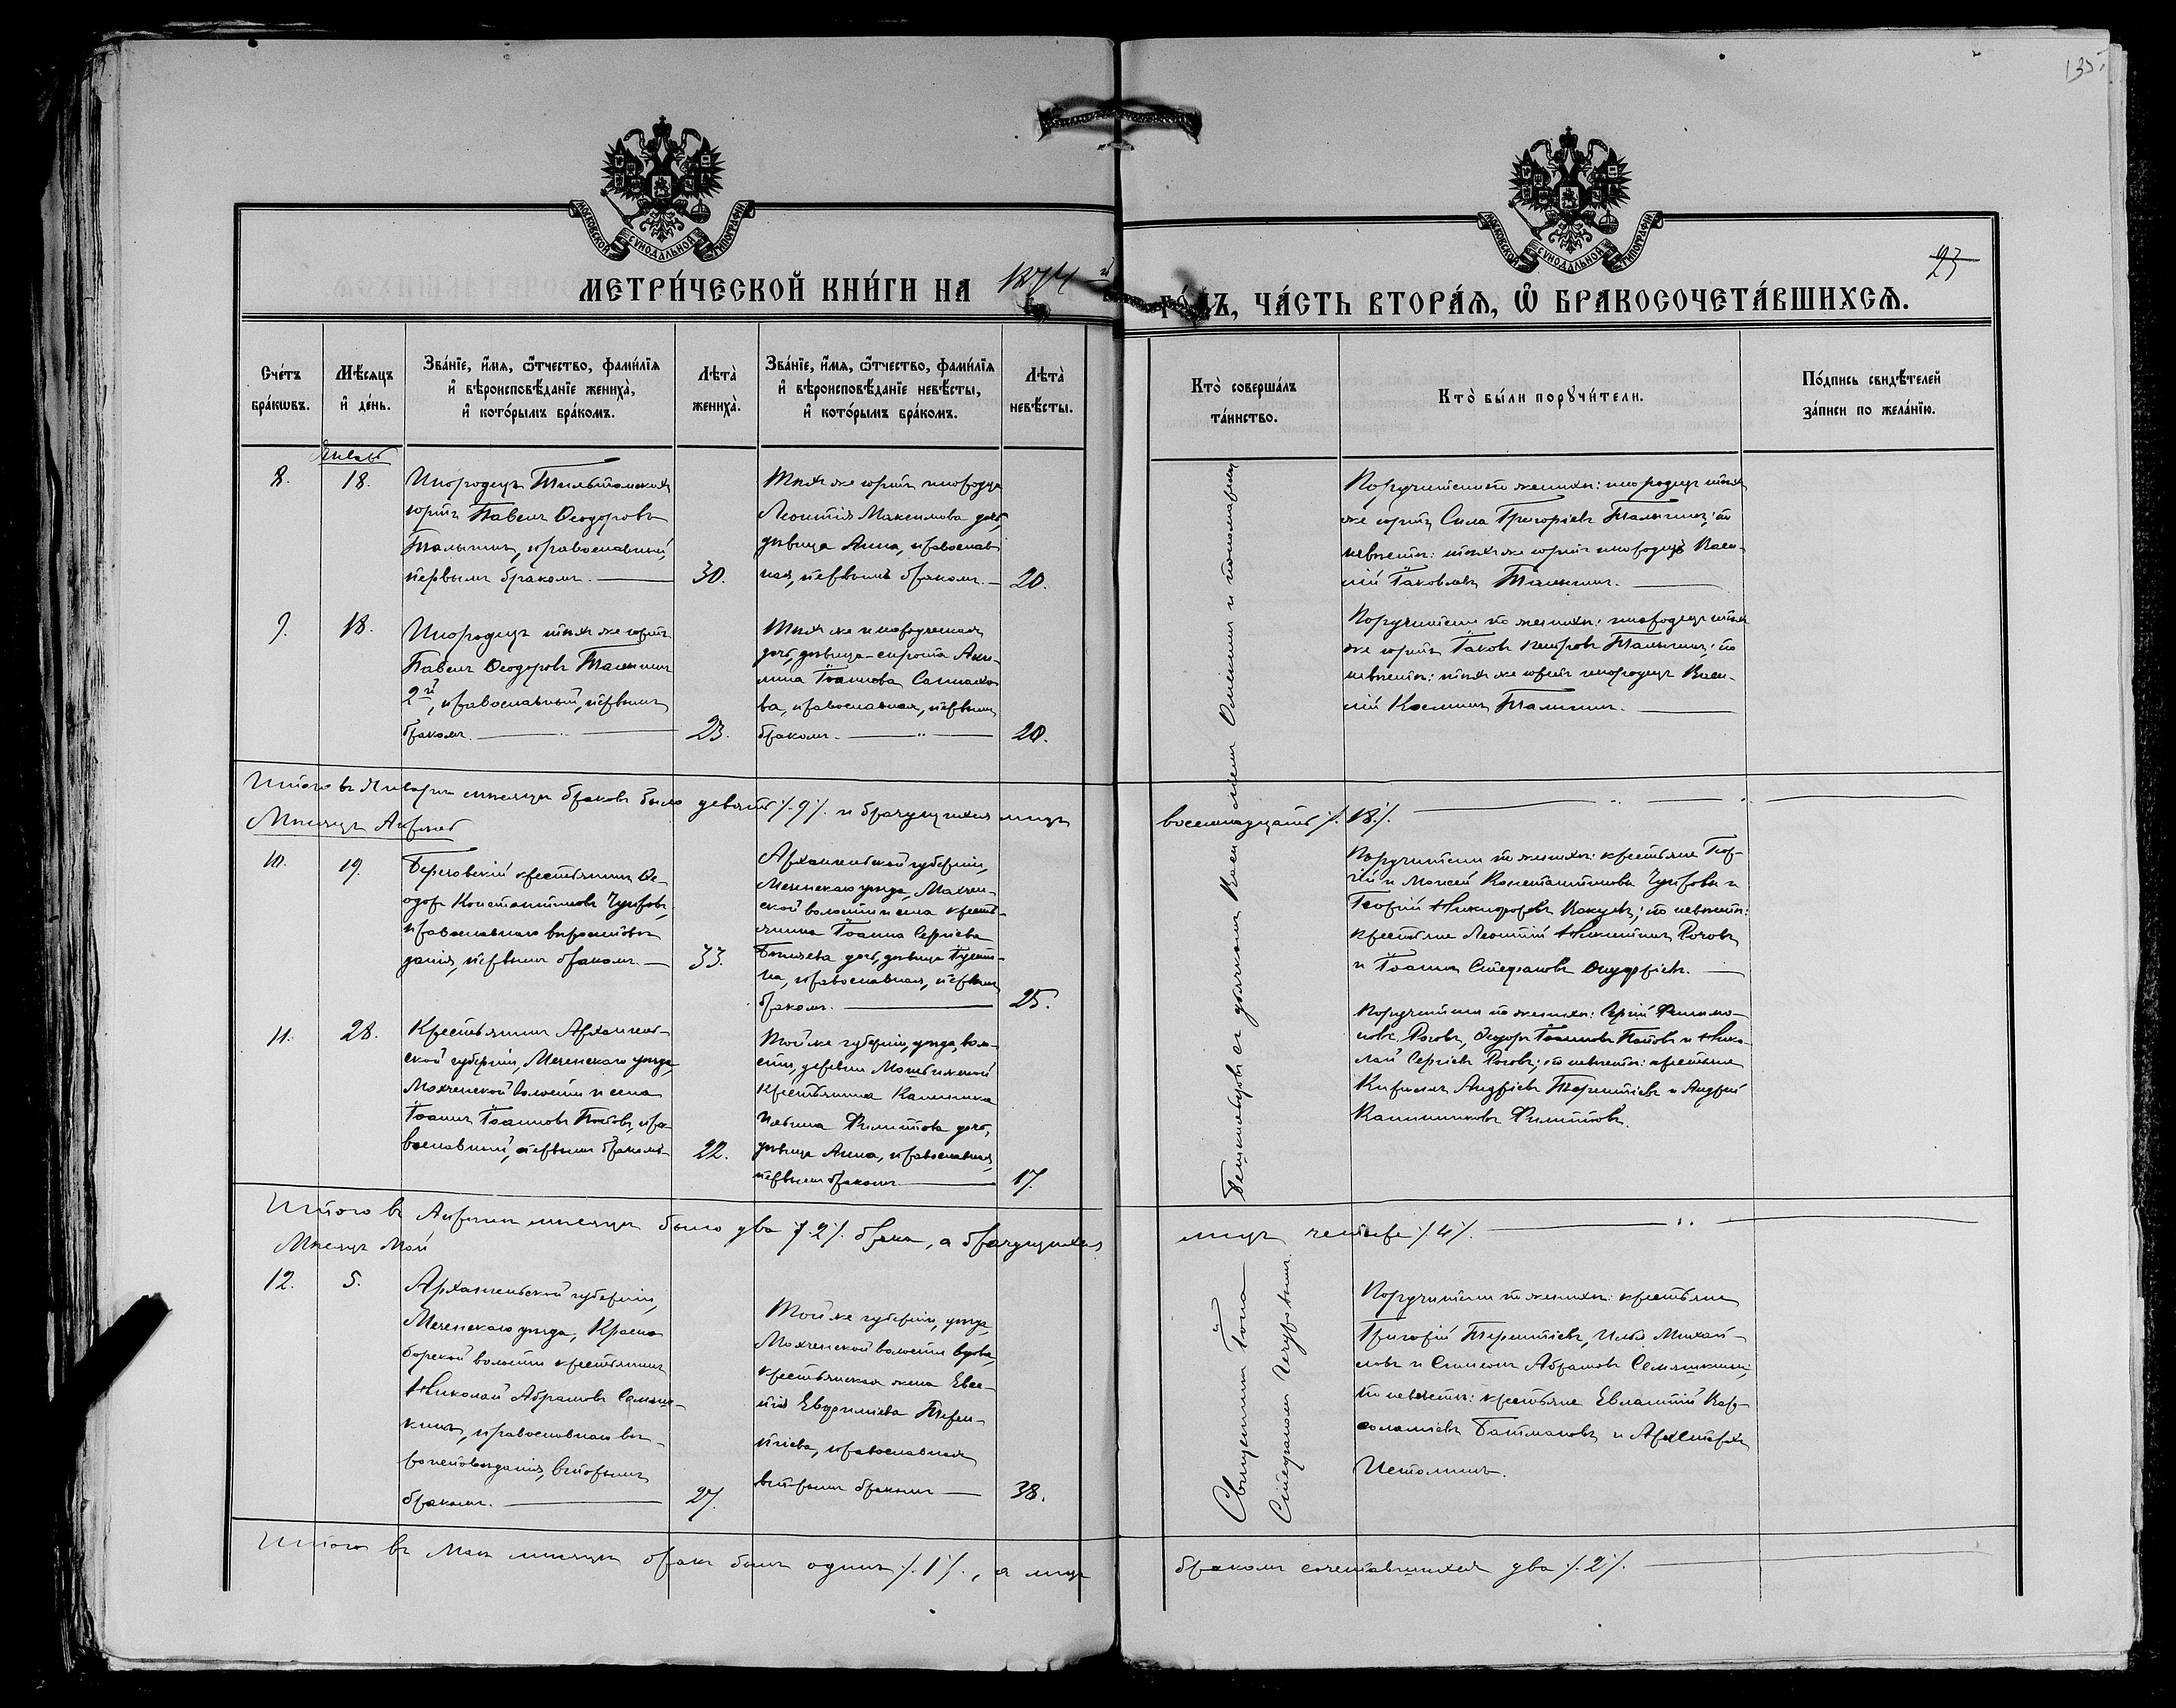 135.
МОСКОВСКОЙ СУНОДАЛЬНОЙ ТИПОГРАФІИ
МОСКОВСКОЙ СУНОДАЛЬНОЙ ТИПОГРАФІИ
23
МЕТРИ́ЧЕСКОЙ КНИ́ГИ НА 1874 й
ГО́ДЪ, ЧА́СТЬ ВТОРА́Я, Ѡ҆ БРАКОСОЧЕТА́ВШИХСѦ.
Сче́тъ бра́кѡвъ.
Мѣ́сяцъ и҆ де́нь.
Зва́нїе, и҆́мѧ, ѻ҆́тчество, фами́лїѧ
и҆ вѣроисповѣ́данїе жениха̀,
и҆ кото́рымъ бра́комъ.
Лѣта̀ жениха̀.
Зва́нїе, и҆́мѧ, ѻ҆́тчество, фами́лїѧ
и҆ вѣроисповѣ́данїе невѣ́сты,
и҆ кото́рымъ бра́комъ.
Лѣта̀ невѣ́сты.
Кто̀ соверша́лъ та́инство.
Кто̀ бы́ли порꙋчи́тели.
По́дпись свидѣ́телей
за́писи по жела́нїю.
Январь
8.
18.
Инородецъ
юртъ Павелъ Ѳеодоровъ
православный,
первымъ бракомъ.
30.
Тѣхъ же юртъ инородца
Леонтія Максимова дочь,
дѣвица Анна, православ
ная, первымъ бракомъ.
20.
Поручители по женихѣ: инородцы тѣхъ
же юртъ Сила Григоріевъ по
невѣстѣ: тѣхъ же юртъ инородецъ Васи-
лій Іаковлевъ
9.
18.
Инородецъ тѣхъ же юртъ
Павелъ Ѳеодоровъ
2й, православный, первымъ
бракомъ.
23.
Тѣхъ же инородческая
дочь, дѣвица-сирота Аки-
лина Іоаннова
ва, православная, первымъ
бракомъ.
20.
Поручители по женихѣ: инородцы тѣхъ
же юртъ Іаковъ Петровъ по
невѣстѣ: тѣхъ же юртъ инородецъ Васи-
лій Косминъ
Итого въ Январѣ мѣсяцѣ браковъ было девять /.9/. и брачущихся лицъ
восемнадцать /.18/.
Мѣсяцъ Апрѣль
10.
19.
Березовскій крестьянинъ Ѳе-
одоръ Константиновъ Чупровъ,
православнаго вѣроисповѣ
данія, первымъ бракомъ.
33.
Архангельской губерніи,
Мезенскаго уѣзда, Мохчен-
ской волости и села кресть-
янина Іоанна Сергіева
дочь, дѣвица Іусти-
на, православная, первымъ
бракомъ.
25.
Поручители по женихѣ: крестьяне
и Моисей Константиновы Чупровы и
Георгій Никифоровъ по невѣстѣ:
крестьяне Леонтій Никитинъ Рочевъ
и Іоаннъ Стефановъ Онуфріевъ.
11.
28.
Крестьянинъ Архангель-
ской губерніи, Мезенскаго уѣзда,
Мохченской волости и села
Іоаннъ Іоанновъ Поповъ, пра-
вославный, первымъ бракомъ
22.
Той же губерніи, уѣзда, воло-
сти, деревни
крестьянина Каллиника
Ильина Филиппова дочь,
дѣвица Анна, православная,
первымъ бракомъ.
17.
Поручители по женихѣ: Сергій Филимо-
новъ Роговъ, Ѳеодоръ Іоанновъ Поповъ и Нико-
лай Сергіевъ Роговъ; по невѣстѣ: крестьяне
Кириллъ Андреевъ Терентіевъ и Андрей
Каллиниковъ Филипповъ.
Итого въ Апрѣлѣ мѣсяцѣ было два /.2/. брака, а брачущихся
лицъ четыре /.4/.
Мѣсяцъ Май
12.
5.
Архангельской губерніи,
Мезенскаго уѣзда, Красно
борской волости крестьянинъ
Николай Абрамовъ Семяш-
кинъ, православнаго вѣ-
роисповѣданія, вторымъ
бракомъ.
27.
Той же губерніи, уѣзда,
Мохченской волости вдова,
крестьянская жена Евге-
нія Евфиміева Терен-
тіева, православная
вторымъ бракомъ
38.
Священникъ Іоанн
Стефаномъ
Поручители по женихѣ: крестьяне
Григорій Терентіевъ, Илья Михай-
ловъ и Симеонъ Абрамовъ Семяшкины;
по невѣстѣ: крестьяне Евлампій Вар-
Батмановъ и
Истоминъ.
Итого въ Маѣ мѣсяцѣ бракъ былъ одинъ /.1/., а лицъ
бракомъ сочетавшихся два /.2/.